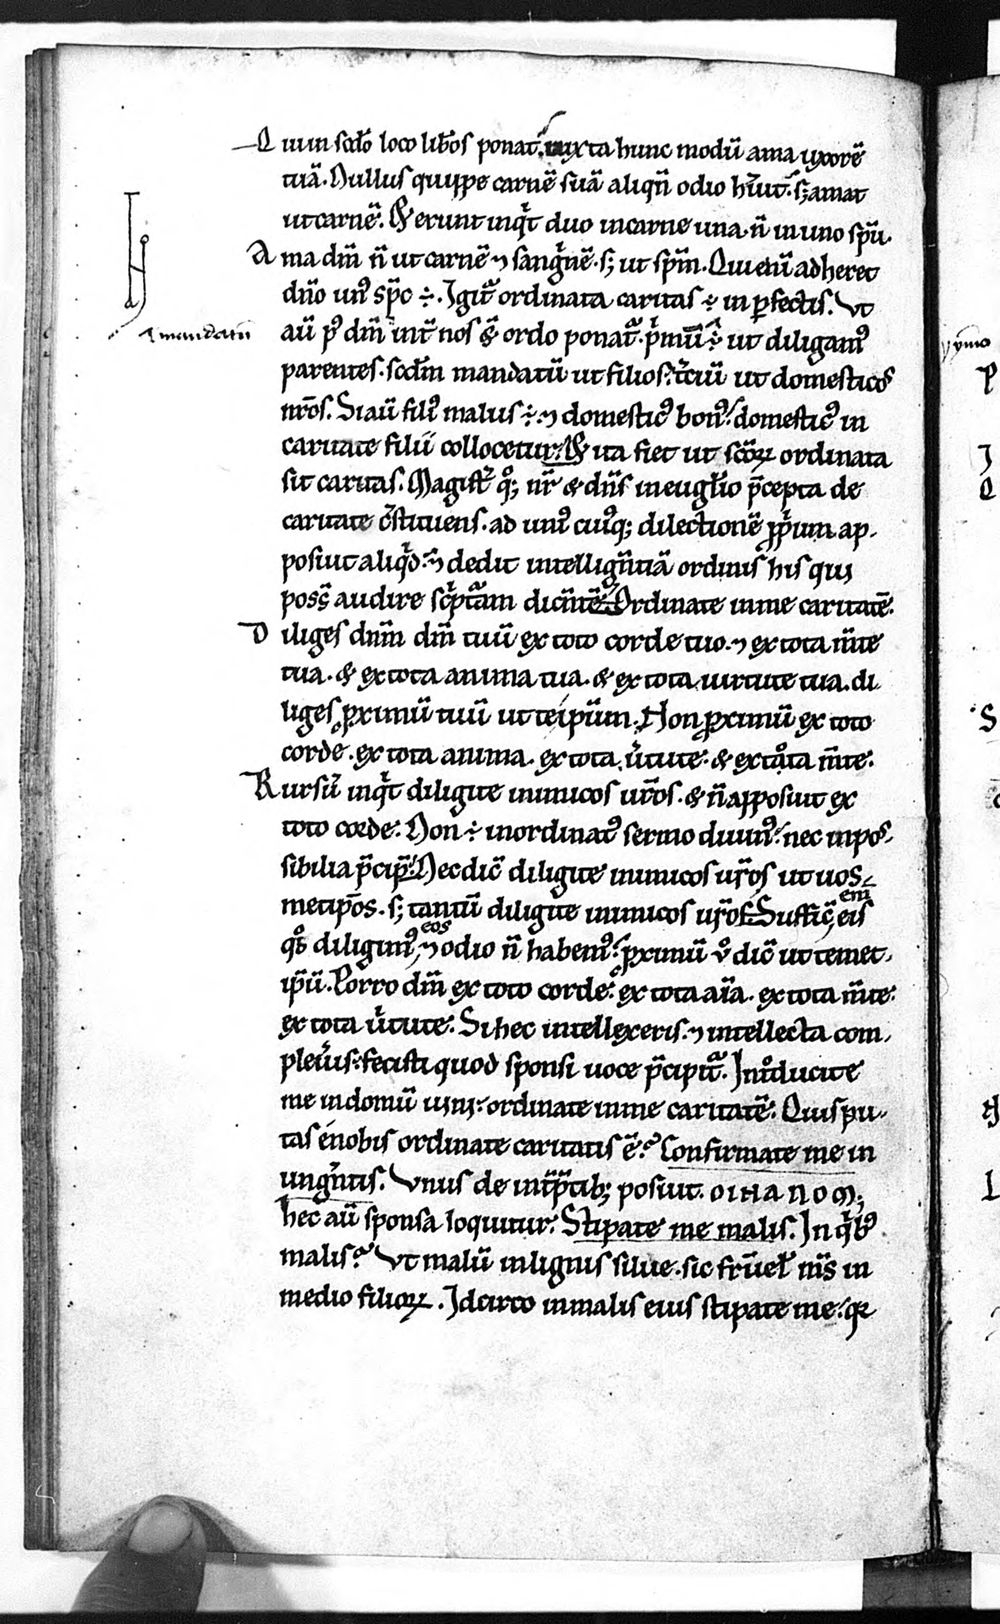 Quin scďo loco lib̃os ponat. iuxta hunc modũ ama uxorẽ
tuã. Nullus quippe carnẽ suã aliqñ odio h̃uit. sʒ amat
ut carnẽ. Et erunt inq̇t duo in carne una. ñ in uno spũ.
Ama dm̃ ñ ut carnẽ ⁊ sang̃nẽ. sʒ ut spm̃. Qui enĩ adheret
dño unꝰ spc̃ ÷. Igit̃ ordinata caritas ÷ in ꝑfectis. Vt
aũ pꝰ dm̃ int̃ nos & ordo ponat̃. p̃mũ ÷ ut diligamꝰ
⁊ mandatũ
parentes. scďm mandatũ ut filios. t̃ciũ ut domesticos
nr̃os. Si aũ filiꝰ malus ÷ ⁊ domesticꝰ bonꝰ. domesticꝰ in
caritate filii collocetur. Et ita fiet ut sc̃oꝝ ordinata
sit caritas. Magist̃ qꝫ nr̃ & dñs in euglĩo p̃cepta de
caritate c̃stituens. ad unꝰ cuiꝰqꝫ dilectionẽ ꝓp̃ium ap-
posuit aliq̇d. ⁊ dedit intellig̃ntiã ordinis his qui
poss̃ audire sc̃ptãm dic̃ntẽ. Ordinate in me caritatẽ.
Diliges dnm̃ dm̃ tuũ ex toto corde tuo. ⁊ ex tota m̃te
tua. & ex tota anima tua. & ex tota uirtute tua. di
liges ꝓximũ tuũ ut teip̃um. Non ꝓximũ ex toto
corde. ex tota anima. ex tota ũtute. & ex tota m̃te.
Rursũ inq̇t diligite inimicos ur̃os. & ñ apposuit ex
toto corde. Non ÷ inordinatꝰ sermo diuinꝰ. nec inpos-
sibilia p̃cip̃. Nec dic̃ diligite inimicos ur̃os ut uos
metip̃os. sʒ tantũ diligite inimicos ur̃os. Suffic̃ eni eis
q̃s diligimꝰ, eos ⁊ odio ñ habemꝰ. ꝓximũ ũo dic̃ ut temet-
ip̃ũ. Porro dm̃ ex toto corde. ex tota aĩa. ex tota m̃te.
ex tota ũtute. Si hec intellexeris. ⁊ intellecta com-
pleũis. fecisti quod sponsi uoce p̃cipit̃. Int̃ducite
me in domũ uini. ordinate in me caritatẽ. Quis pu-
tas e nobis ordinate caritatis ẽ? Confirmate me in
ung̃ntis. Vnus de int̃p̃tibꝫ posuit. oinanom;
hec aũ sponsa loquitur. Stipate me malis. In q̇bꝰ
malis? Vt malũ in lignis silue. sic fr̃uel̃ m̃s in
medio filioꝝ. Idcirco in malis eius stipate me. qꝛ